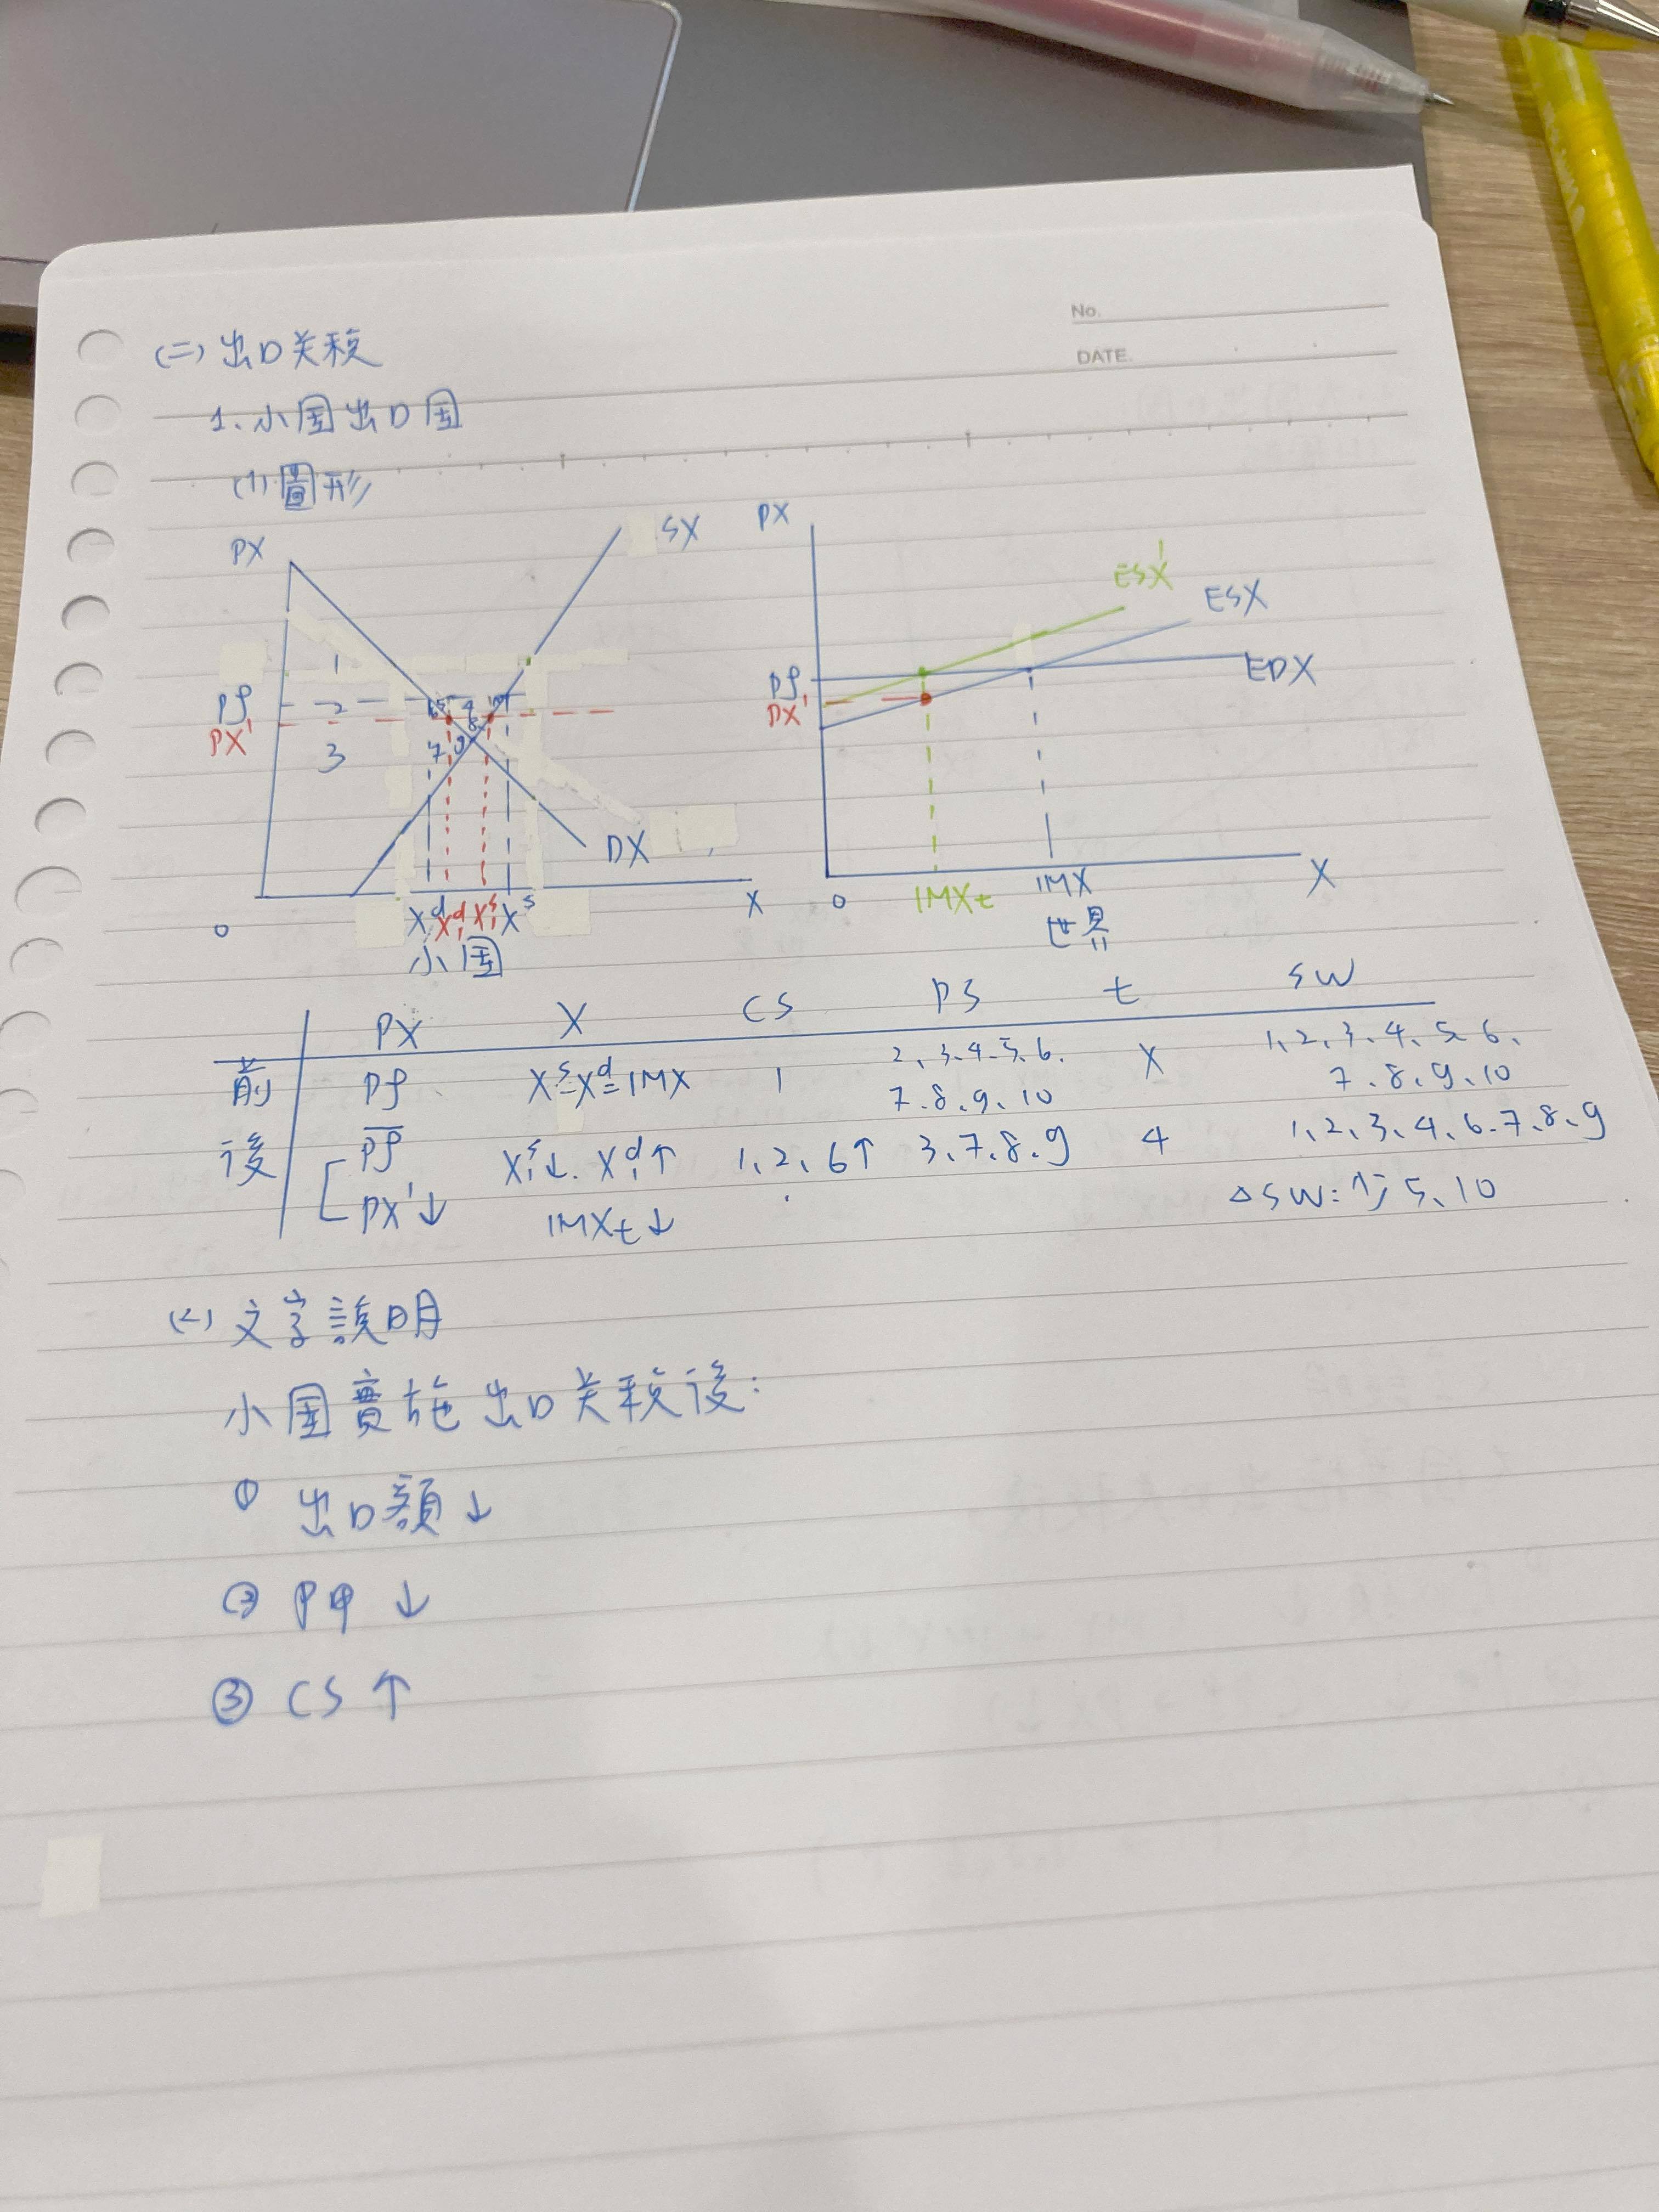 No.
DATE.
(二) 出口关稅
1. 小国出口国
(1) 圖形
PX SX
Pf
PX'
1
2
3
6 5 4 10
7 9 8
DX
X^d X₁^d X₁^s X^s X
0
小国
PX
ESX'
ESX
Pf EDX
PX'
0 IMXt IMX X
世界
PX X CS PS t SW
前 Pf X^s-X^d=IMX 1 2、3、4、5、6、 X 1、2、3、4、5、6、
7、8、9、10 7、8、9、10
後 P̅f̅ X₁^s↓、X₁^d↑ 1、2、6↑ 3、7、8、9 4 1、2、3、4、6、7、8、9
PX'↓ IMXt↓ △SW:少5、10
(2) 文字說明
小国實施出口关稅後:
① 出口額↓
② P甲↓
③ CS↑